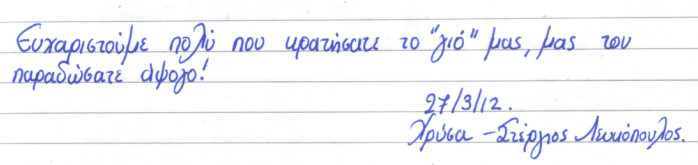 Ευχαριστούμε πολύ που κρατήσατε το "γιό" μας, μας τον
παραδώσατε άψογο!
27/3/12.
Χρύσα - Στέργιος Λεκόπουλος.